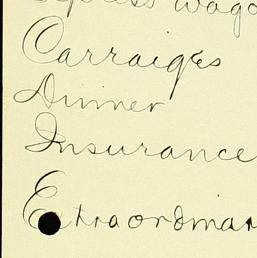 Express Wago
Carraiges
Dinner
Insurance
Extraordinar